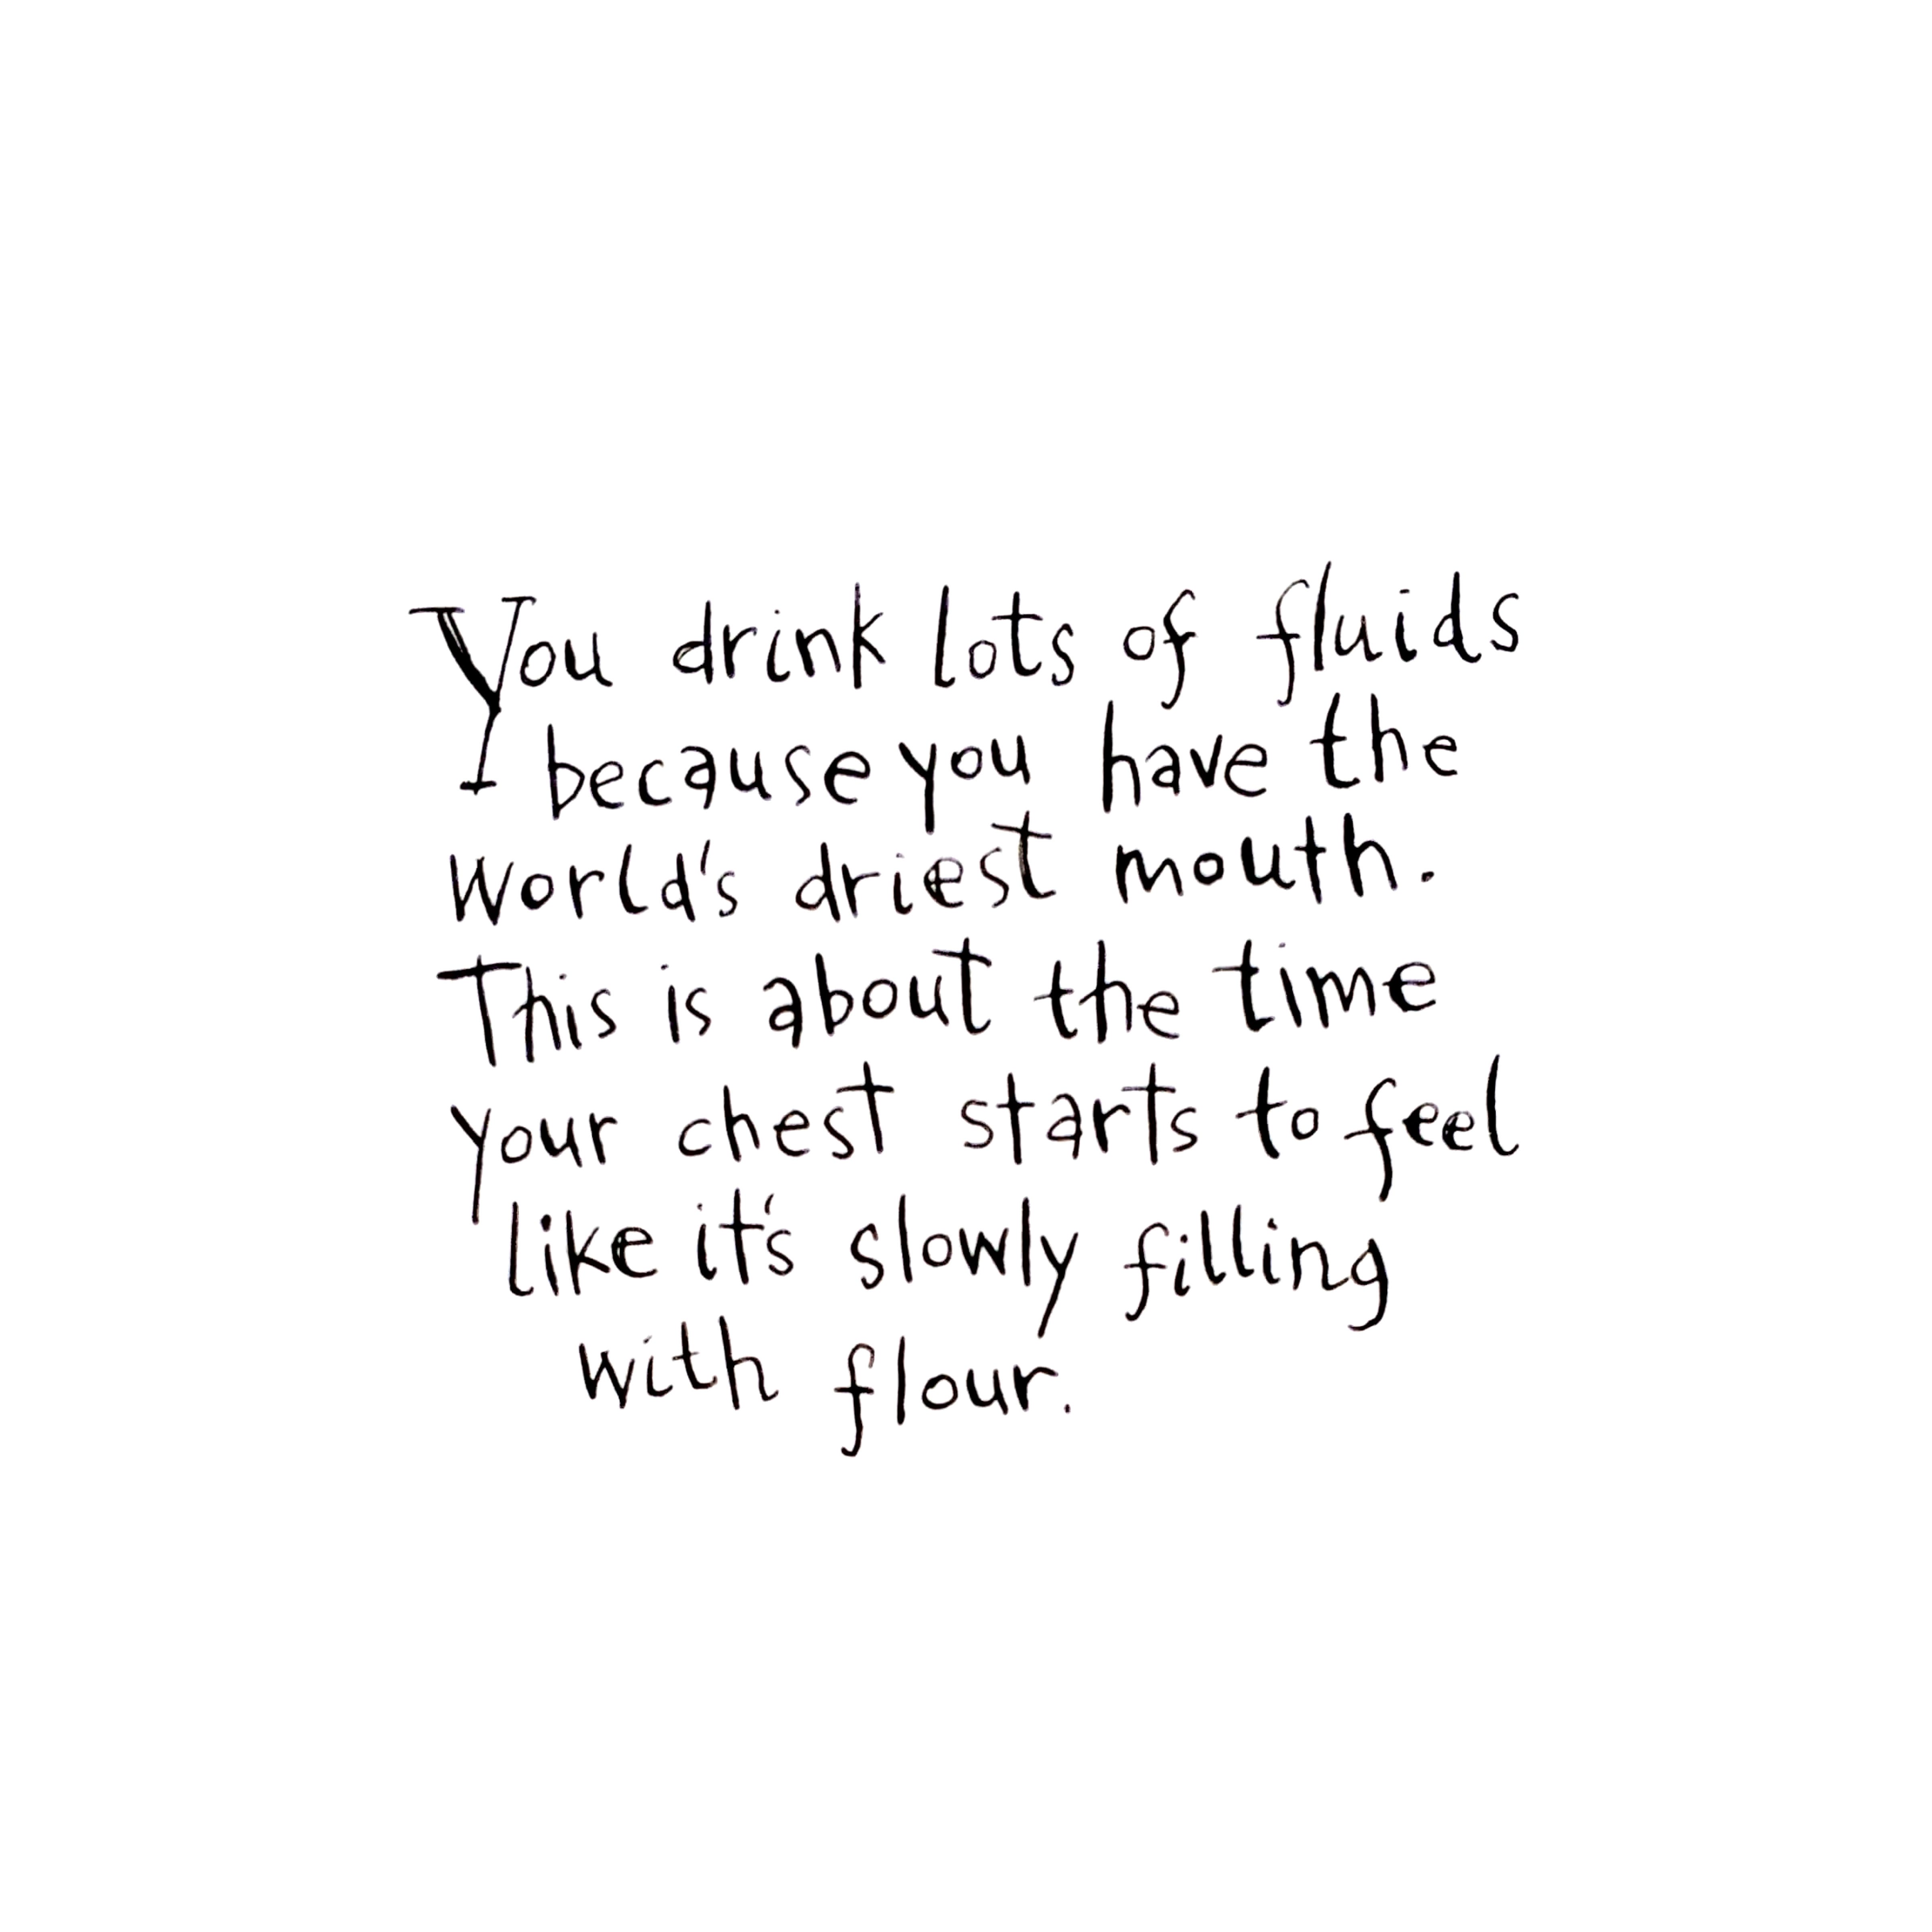 You drink lots of fluids
because you have the
world's driest mouth.
This is about the time
your chest starts to feel
like it's slowly filling
with flour.